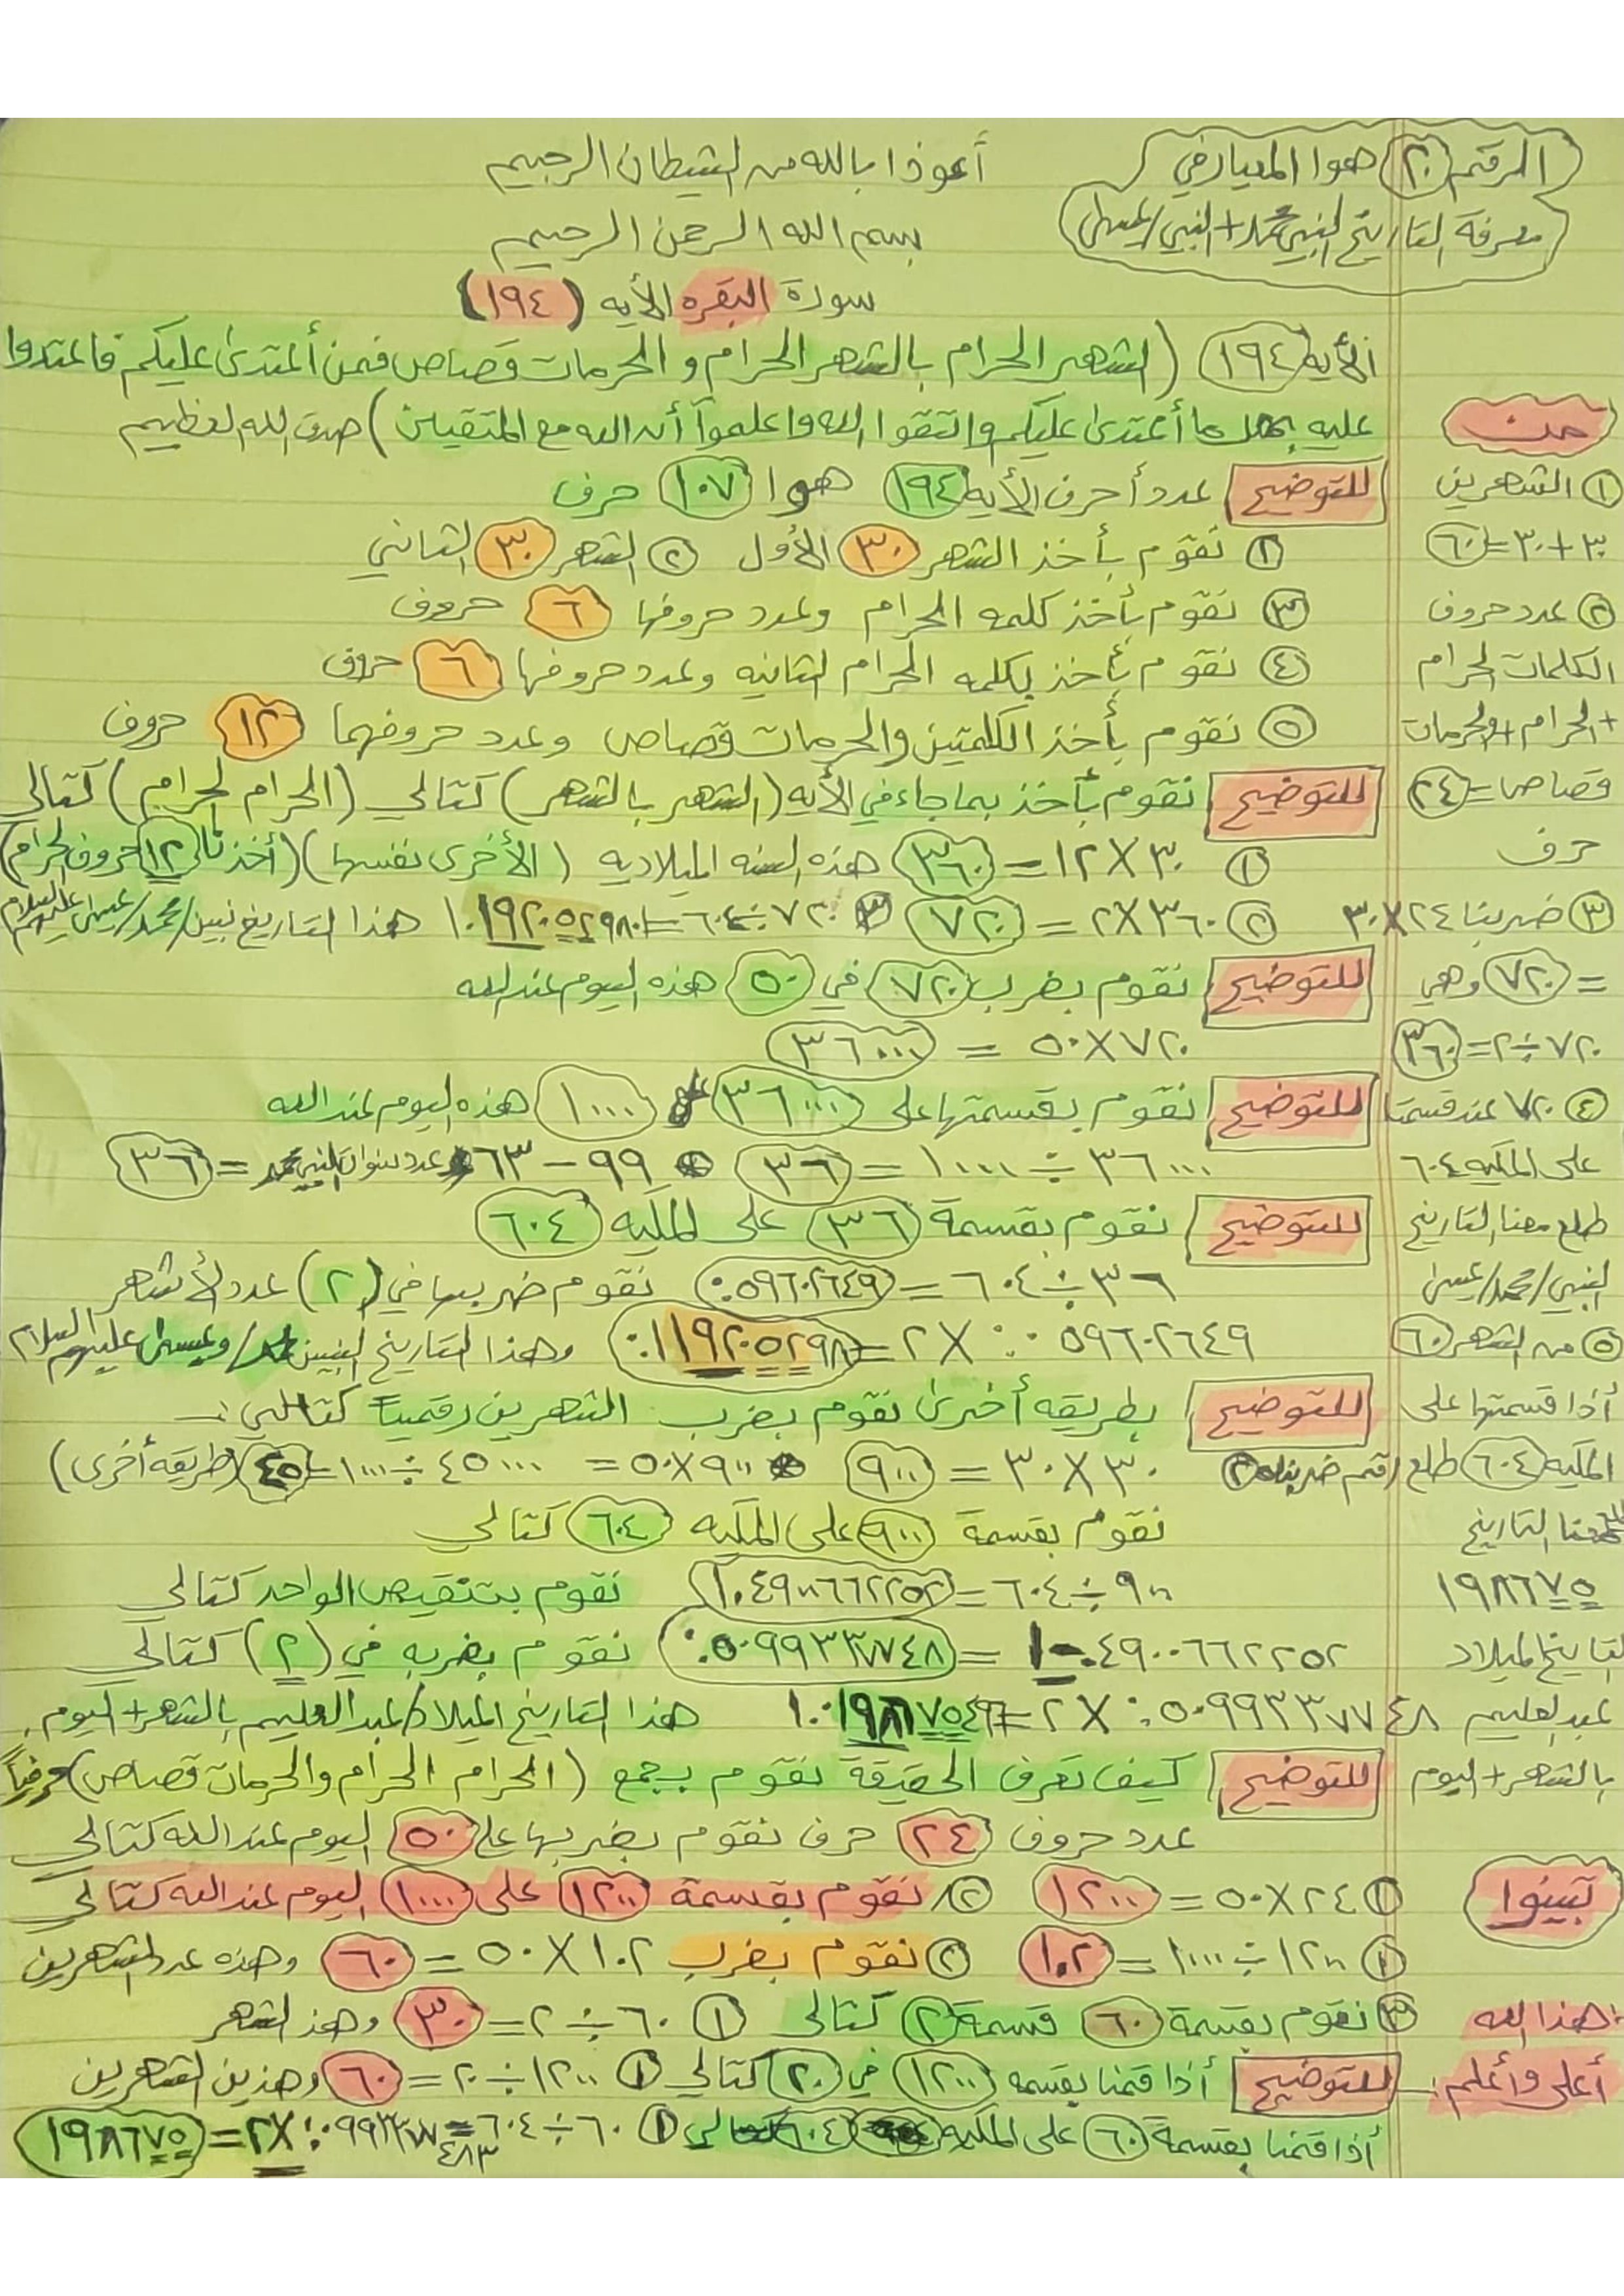 الرقم ٢٠ هوا المعيار في
معرفة التاريخ النبي محمد + النبي/عيسى
أعوذا بالله من الشيطان الرجيم
بسم الله الرحمن الرحيم
سورة البقره الأيه (١٩٤)
الأيه ١٩٤ (الشهر الحرام بالشهر الحرام و الحرمات قصاص فمن أعتدى عليكم فاعتدوا
عليه بمثل ما أعتدى عليكم واتقوا الله واعلموآ أن الله مع المتقين) صدق الله العظيم
للتوضيح عدد أحرف الأيه ١٩٤ هوا ١٠٧ حرف
١ نقوم بأخذ الشهر ٣٠ الأول ٢ الشهر ٣٠ الثاني
٣ نقوم بأخذ كلمه الحرام وعدد حروفها ٦ حروف
٤ نقوم بأخذ كلمه الحرام الثانيه وعدد حروفها ٦ حروف
٥ نقوم بأخذ الكلمتين والحرمات قصاص وعدد حروفهما ١٢ حروف
للتوضيح نقوم بأخذ بما جاء في الأيه (الشهر بالشهر) كتالي (الحرام الحرام) كتالي
١ ٣٠×١٢=٣٦٠ هذه السنه الميلاديه (الأخرى نفسها) (أخذنا ١٢ حروف الحرام)
٢ ٣٦٠×٢=٧٢٠ ٣ ٧٢٠÷٦٠٤=١.١٩٢٠٥٢٩٨٠ هذا التاريخ نبين/محمد/عيسى عليهم السلام
للتوضيح نقوم بضرب ٧٢٠ في ٥٠ هذه اليوم عند الله
٧٢٠×٥٠=٣٦٠٠٠
للتوضيح نقوم بقسمتها على ٣٦٠٠٠ على ١٠٠٠ هذه اليوم عند الله
٣٦٠٠٠÷١٠٠٠=٣٦ ٩٩-٦٣ عدد سنوات النبي محمد=٣٦
للتوضيح نقوم بقسمة ٣٦ على المكيه ٦٠٤
٣٦÷٦٠٤=٠.٠٥٩٦٠٢٦٤٩ نقوم ضربها في (٢) عدد الأشهر
٠.٠٥٩٦٠٢٦٤٩×٢=٠.١١٩٢٠٥٢٩٨ وهذا التاريخ النبيين محمد/وعيسى عليهم السلام
للتوضيح بطريقه أخرى نقوم بضرب الشهرين رقمياً كتالي:-
٣٠×٣٠=٩٠٠ ٩٠٠×٥٠=٤٥٠٠٠÷١٠٠٠=٤٥ (طريقه أخرى)
نقوم بقسمة ٩٠٠ على المكيه ٦٠٤ كتالي
٩٠٠÷٦٠٤=١.٤٩٠٠٦٦٢٢٥٢ نقوم بتنقيص الواحد كتالي
١-٠.٤٩٠٠٦٦٢٢٥٢=٠.٥٠٩٩٣٣٧٧٤٨ نقوم بضربه في (٢) كتالي
٠.٥٠٩٩٣٣٧٧٤٨×٢=١.٠١٩٨٦٧٥٤٩٦ هذا التاريخ الميلاد/عبدالعليم بالشهر+اليوم
للتوضيح كيف نعرف الحقيقة نقوم بجمع (الحرام الحرام والحرمات قصاص) حرفياً
عدد حروف ٢٤ حرف نقوم بضربها على ٥٠ اليوم عند الله كتالي
١ ٢٤×٥٠=١٢٠٠ ٢ نقوم بقسمة ١٢٠٠ على ١٠٠٠ اليوم عند الله كتالي
١ ١٢٠٠÷١٠٠٠=١.٢ ٢ نقوم بضرب ١.٢×٥٠=٦٠ وهذه عدد الشهرين
٣ نقوم بقسمة ٦٠ قسمة ٢ كتالي ١ ٦٠÷٢=٣٠ وهذ الشهر
للتوضيح أذا قمنا بقسمه ١٢٠٠ في ٢٠ كتالي ١ ١٢٠٠÷٢٠=٦٠ وهذين الشهرين
أذا قمنا بقسمة ٦٠ على المكيه ٦٠٤ كتالي ١ ٦٠÷٦٠٤=٠.٠٩٩٣٣٧٧٤٨٣×٢=١٩٨٦٧٥
١ الشهرين
٣٠+٣٠=٦٠
٢ عدد حروف
الكلمات الحرام
+الحرام+والحرمات
قصاص=٢٤
حرف
٣ ضربنا ٢٤×٣٠
=٧٢٠ وهي
٧٢٠÷٢=٣٦٠
٤ ٧٢٠ عند قسمتا
على المكيه ٦٠٤
طلع معنا التاريخ
النبي/محمد/عيسى
٥ من الشهر ٦٠
أذا قسمتها على
المكيه ٦٠٤ طلع رقم ضربناه ٢
معنا التاريخ
١٩٨٦٧٥
التاريخ الميلاد
عبدالعليم
بالشهر+اليوم
تبينوا
هذا الله
أعلى وأعلم:-